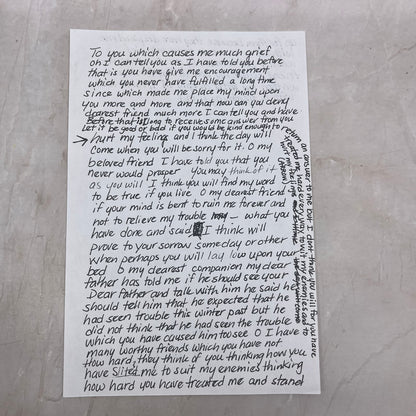 To you which causes me much grief
oh I can tell you as I have told you before
that is you have give me encouragement
which you never have fulfilled a long time
since which made me place my mind upon
you more and more and that now can you deny
dearest friend much more I can tell you and have
before that long to receive some answer from you
Let it be good or bad if you would be kind enough to
hurt my feeling and I think the day will
come when you will be sorry for it. O my
beloved friend I have told you that you
never would prosper you may think of it
as you will I think you will find my word
to be true if you live O my dearest friend
if your mind is bent to ruin me forever and
not to relieve my trouble what you
have done and said I think will
prove to your sorrow someday or other
when perhaps you will lay low upon your
bed O my dearest companion my dear
father has told me if he should see your
Dear Father and talk with him he said he
should tell him that he expected that he
had seen trouble this winter past but he
did not think that he had seen the trouble
which you have caused him too see O I have
many worthy friends which you have not
How hard, they think of you thinking how you
have Slited me to suit my enemies thinking
how hard you have treated me and stand
return an answer to me but I dont think you will for you have
treated me hard every way to suit my enemies said to